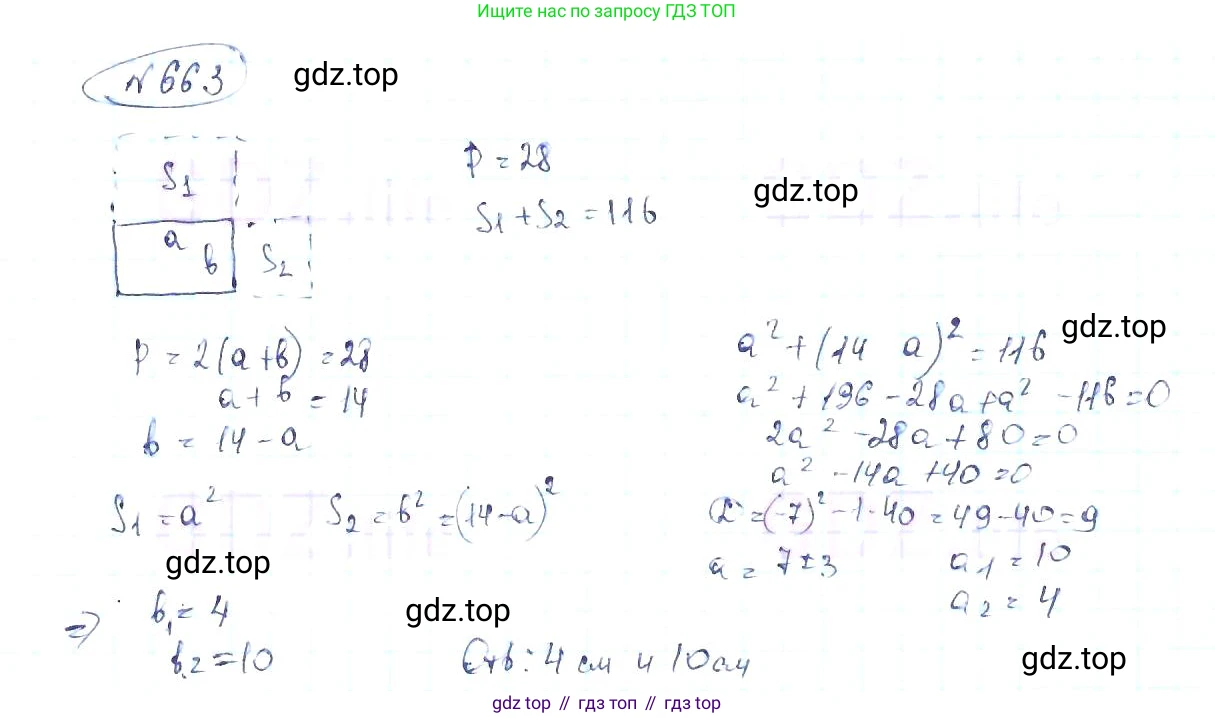 Ищите нас по запросу ГДЗ ТОП
№663
gdz.top
S₁
a
b
S₂
P = 28
S₁ + S₂ = 116
gdz.top
P = 2(a + b) = 28
a + b = 14
b = 14 - a
S₁ = a²
S₂ = b² = (14 - a)²
gdz.top
a² + (14 a)² = 116
gdz.top
a² + 196 - 28a + a² - 116 = 0
2a² - 28a + 80 = 0
a² - 14a + 40 = 0
= (-7)² - 1·40 = 49 - 40 = 9
a = 7 ± 3
a₁ = 10
a₂ = 4
⇒ b₁ = 4
b₂ = 10
gdz.top
Отв: 4 см и 10 см
gdz.top
gdz.top // гдз топ // гдз top